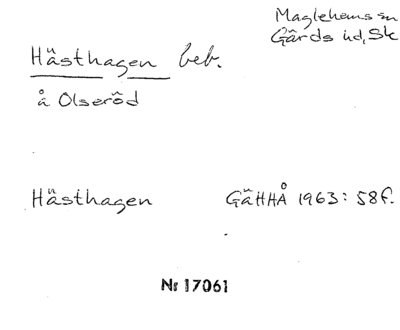 Maglehems sn
Gärds hd, Sk
Hästhagen beb.
å Olseröd
Hästhagen GäHHÅ 1963: 58f.
Nr 17061